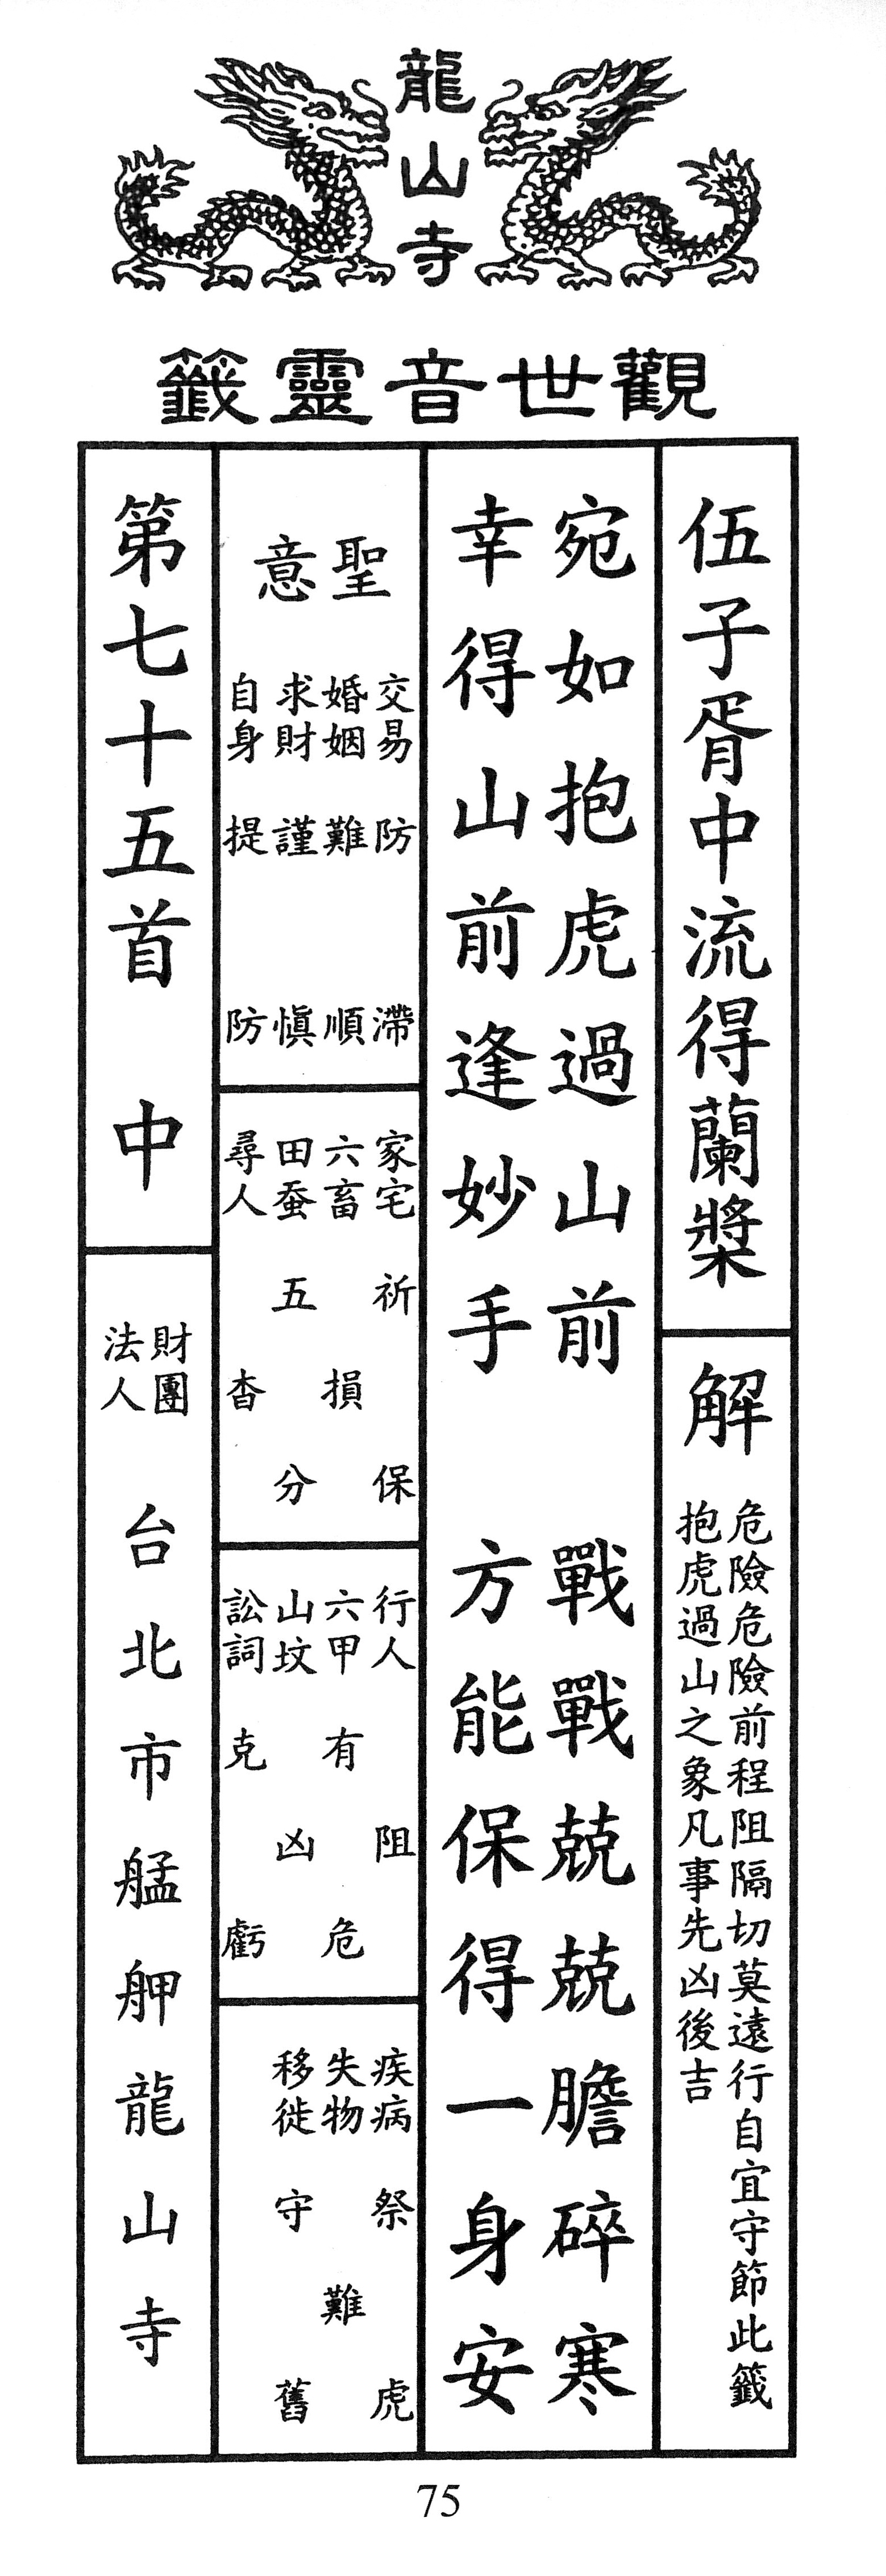 龍山寺
觀世音靈籤
伍子胥中流得蘭槳
解
危險危險前程阻隔切莫遠行自宜守節此籤
抱虎過山之象凡事先凶後吉
宛如抱虎過山前　戰戰兢兢膽碎寒
幸得山前逢妙手　方能保得一身安
聖意
交易　防滯
婚姻　難順
求財　謹慎
自身　提防
家宅　祈保
六畜　損
田蚕　五分
尋人　杳
行人　阻
六甲　有危
山坟　凶
訟詞　克虧
疾病　祭虎
失物　難
移徙　守舊
第七十五首　中
財團法人
台北市艋舺龍山寺
75